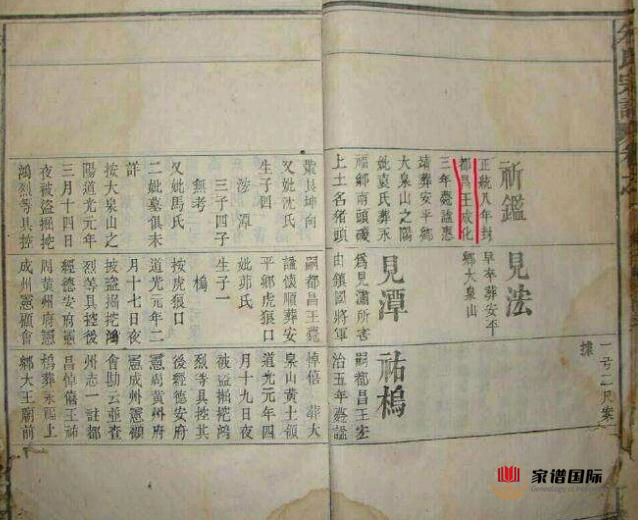 祈鑑
正統八年封
都昌王成化
三年薨諡惠
靖葬安平鄉
大泉山之陽
妣袁氏葬永
福鄉南頭磯
上土名豬頭
又妣沈氏
生子四
涉 潭
三子四子
無考
又妣馬氏
二妣墓俱未
詳
按大泉山之
陽道光元年
三月十四日
夜被盜掘挖
鴻烈等具控
見法
早卒葬安平
鄉大泉山
見潭
為見潚所害
由鎮國將軍
嗣都昌王薨
諡懷順葬安
平鄉虎狼口
妣茆氏
生子一
按虎狼口
道光元年二
月十七日夜
被盜掘挖鴻
烈等具控後
經德安府憲
周黃州府憲
成州憲顧會
祐
嗣都昌王宏
治五年薨諡
悼僖 葬大
泉山黃土嶺
道光元年四
月十九日夜
被盜掘挖鴻
烈等具控其
後經德安府
憲周黃州府
憲成州憲顧
會勘云並查
州志一註都
昌悼僖王祐
葬永福上
鄉大王廟前
一号二尺案
家谱国际